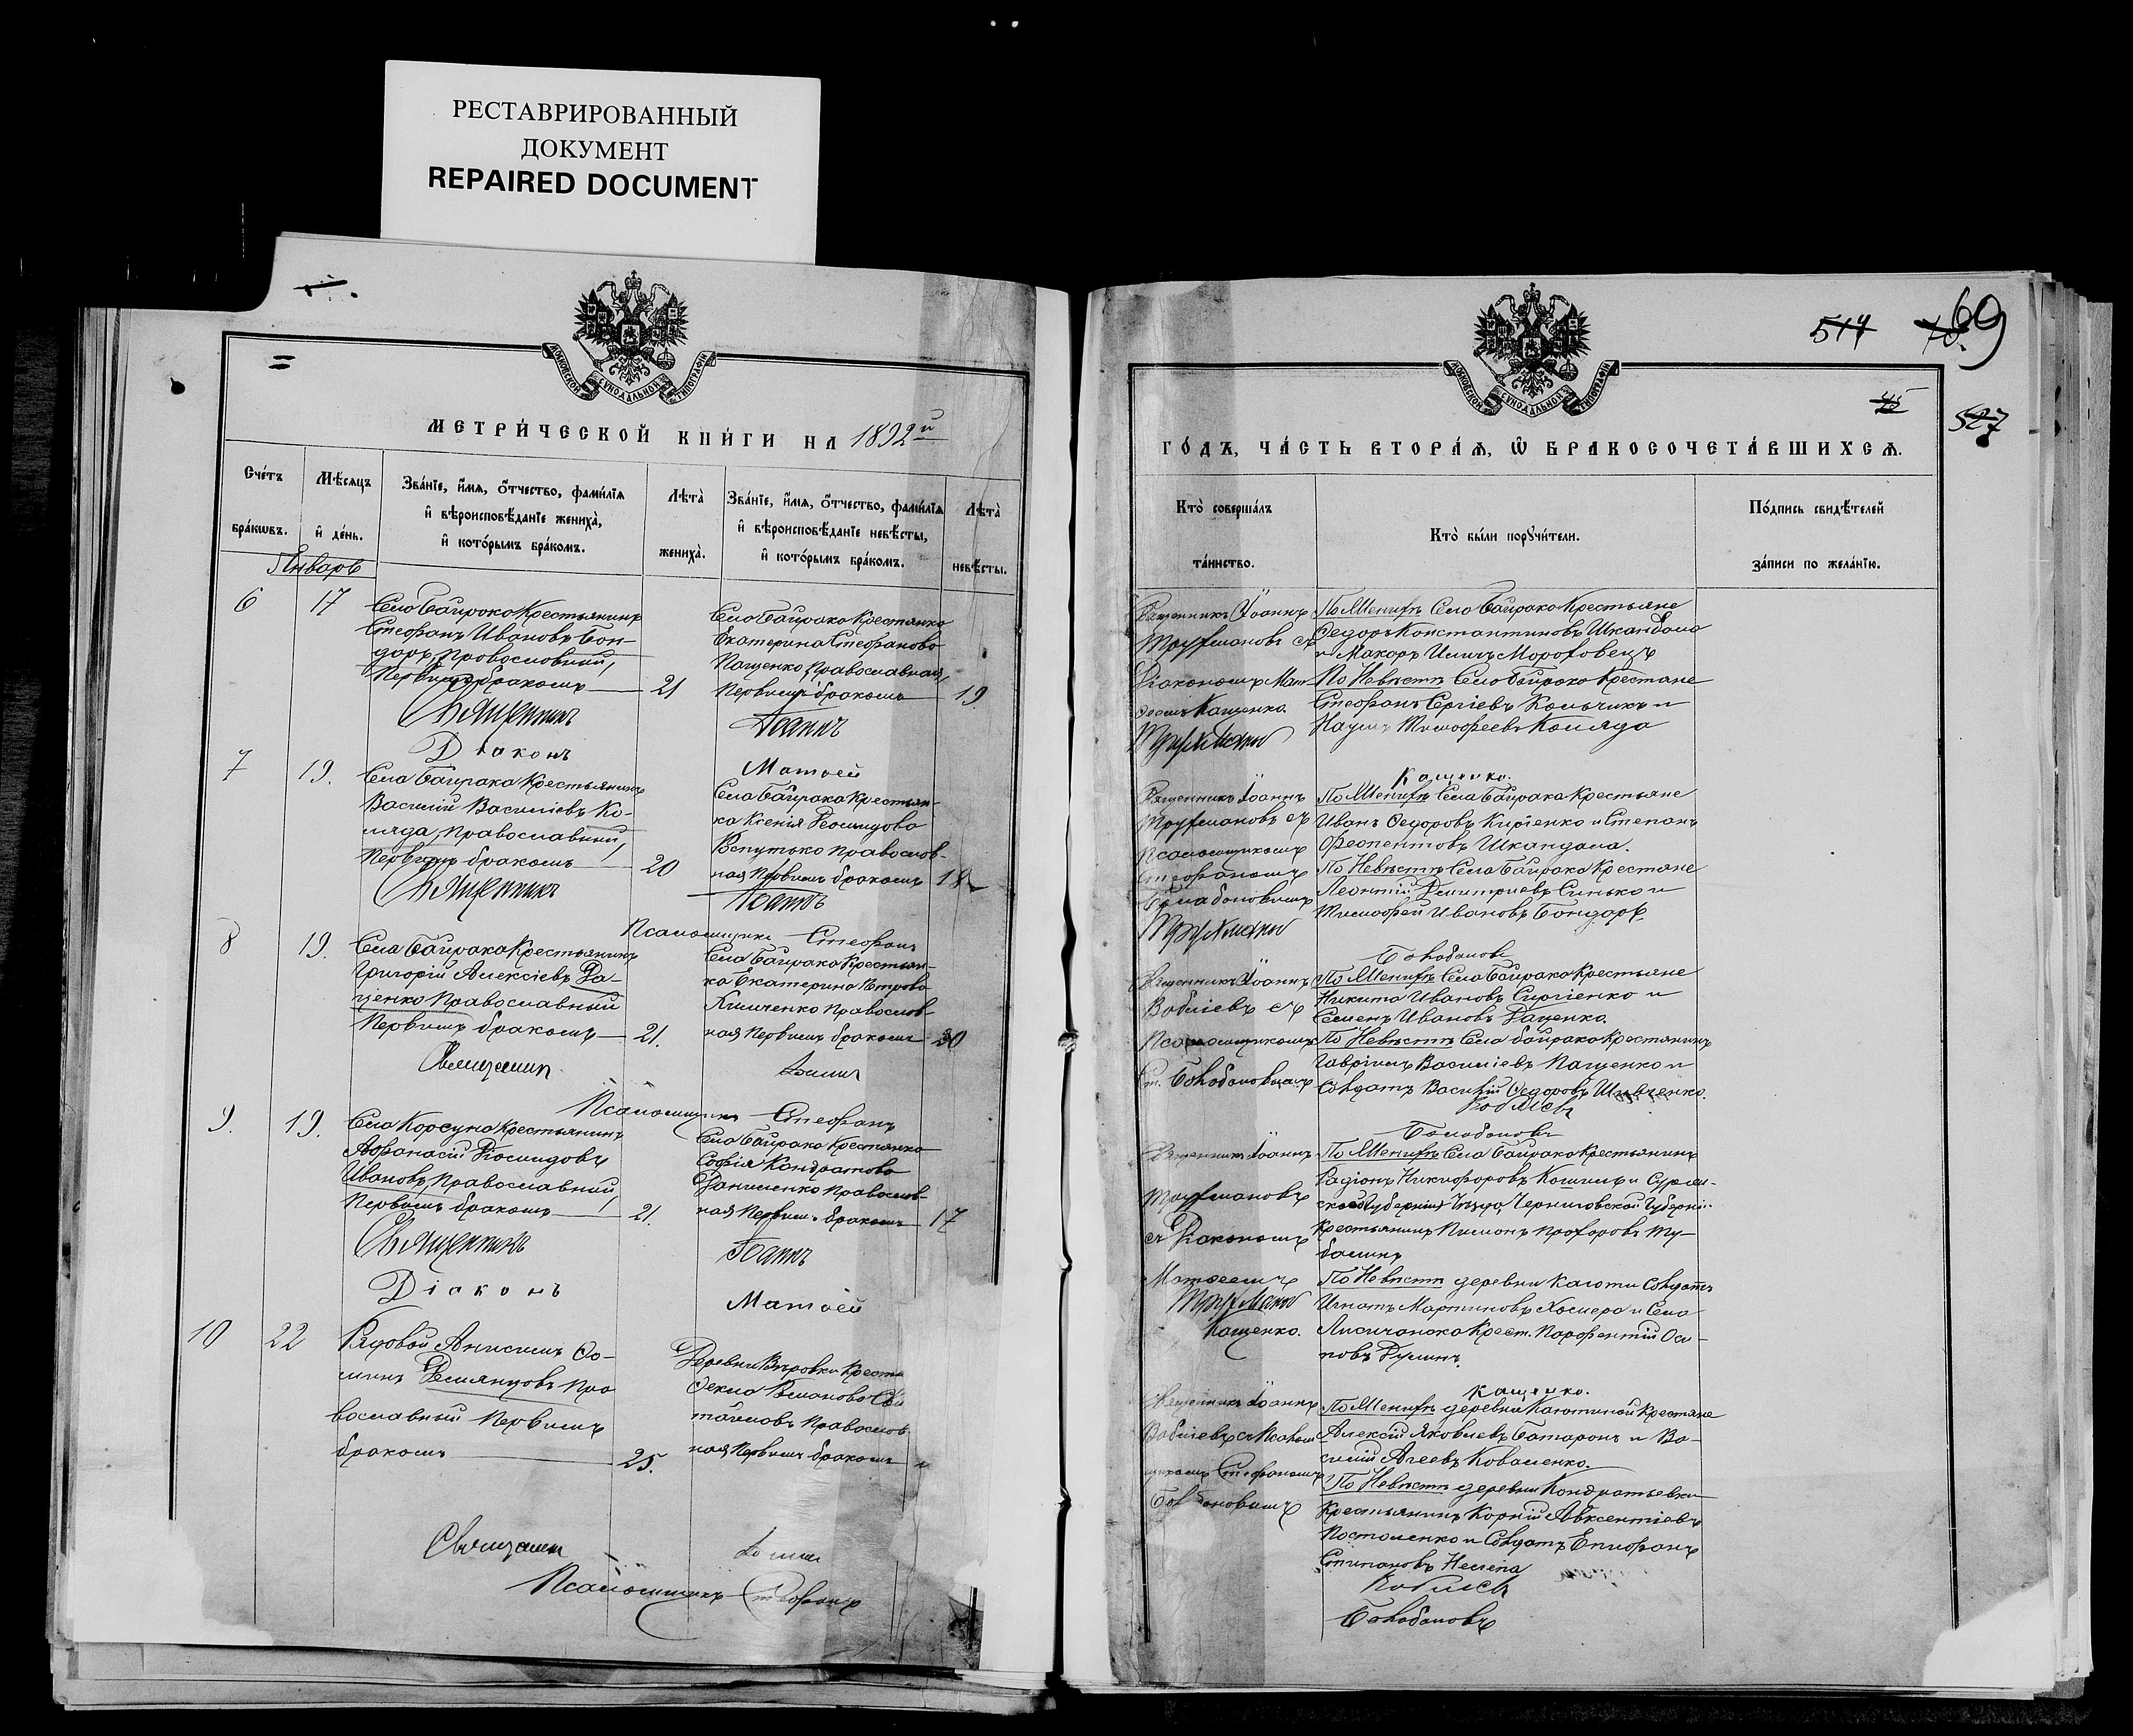 РЕСТАВРИРОВАННЫЙ
ДОКУМЕНТ
REPAIRED DOCUMENT
МОСКОВСКОЙ СѴНОДАЛЬНОЙ ТИПОГРАФІИ
МЕТРИ́ЧЕСКОЙ КНИ́ГИ НА 1892й
Сче́тъ
бра́кωвъ.
Мѣ́сяцъ
и҆ де́нь.
Зва́нїе, и҆́мѧ, ѻ҆́тчество, фами́лїѧ
и҆ вѣроисповѣ́данїе жениха̀,
и҆ кото́рымъ бра́комъ.
Лѣ́та̀
жениха̀.
Зва́нїе, и҆́мѧ, ѻ҆́тчество, фами́лїѧ
и҆ вѣроисповѣ́данїе невѣ́сты,
и҆ кото́рымъ бра́комъ.
Лѣ́та̀
невѣ́сты.
Январь
6
17
Село Байрака Крестьянинъ
Стефанъ Ивановъ Бон-
даръ, православный,
первымъ бракомъ
21
Село Байрака Крестянка
Екатерина Стефанова
Пащенко, православная,
первымъ бракомъ
19
Священникъ
Іоаннъ
Діаконъ
Матѳей
7
19.
Села Байрака Крестьянинъ
Василій Василіевъ Ко-
ляда, православный,
первымъ бракомъ
20
Села Байрака Крестьян-
ка Ксенія
православ-
ная первымъ бракомъ
18
Священникъ
Іоаннъ
Псаломщикъ Стефанъ
8
19.
Села Байрака Крестьянинъ
Григорій Алексіевъ Да-
ценко православный
первымъ бракомъ
21.
Села Байрака Крестьян-
ка Екатерина Петрова
Клименко православ-
ная первымъ бракомъ
20
Священникъ
Іоаннъ
Псаломщикъ Стефанъ
9.
19.
Села Корсуна Крестьянинъ
Афанасій Діомидовъ
Ивановъ, православный,
первымъ бракомъ
21.
Села Байрака Крестянка
Софія Кондратова
Даниленко православ-
ная первым. бракомъ
17
Священникъ
Іоаннъ
Діаконъ
Матѳей
10
22
Рядовой Анисимъ Ѳо-
минъ Демянцовъ пра
вославный первымъ
бракомъ
25.
Деревни Вѣровки Крест.
Ѳекла Романова
православ
ная первым бракомъ
Священник
Псаломщикъ Стефанъ
514
69
527
МОСКОВСКОЙ СѴНОДАЛЬНОЙ ТИПОГРАФІИ
ГО́ДЪ, ЧА́СТЬ ВТОРА́Ѧ, Ѽ БРАКОСОЧЕТА́ВШИХСѦ.
Кто̀ соверша́лъ
та́инство.
Кто̀ бы́ли порꙋчи́тели.
По́дпись свидѣ́телей
за́писи по жела́нїю.
Священникъ Іоаннъ
Труфмановъ съ
Діакономъ Мат
ѳеемъ Кащенко.
По Женихѣ Село Байрака Крестьяне
Ѳедоръ Константиновъ Шкандала
и Макаръ Ильичъ Мороховецъ
По Невѣстѣ Село Байрака Крестяне
Стефанъ Сергіевъ Кольчикъ и
Наумъ Тимофеевъ Коляда
Кащенко.
Священникъ Іоаннъ
Труфмановъ съ
Псаломщикомъ
Стефаномъ
Балабановымъ
По Женихѣ Села Байрака Крестьяне
Иванъ Ѳедоровъ Киріенко и Степанъ
Феопентовъ Шкандала.
По Невѣстѣ Села Байрака Крестяне
Леонтій Дмитріевъ Синько и
Тимофей Ивановъ Бондаръ.
Балабановъ
Священникъ Іоаннъ
Вабліевъ съ
Псаломщикомъ
Ст. Балабановымъ
По Женихѣ Села Байрака Крестьяне
Никита Ивановъ Сиргіенко и
Семенъ Ивановъ Даценко.
По Невѣстѣ Села Байрака Крестянинъ
Гаврилъ Василіевъ Пащенко и
Солдатъ Василій Ѳедоровъ Шивченко.
Балабановъ
Священникъ Іоаннъ
Труфмановъ
съ Діакономъ
Матѳеемъ
Кащенко.
По Женихѣ Села Байрака Крестьянинъ
Радіонъ Никифоровъ
Черниговской Губерніи
Крестьянинъ Пимонъ Прохоровъ Ту-
балинъ
По Невѣстѣ деревни Каюты Солдатъ
Игнатъ Мартиновъ Хомера и Села
Лисичанска Крест. Парфентій Оси-
повъ Думинъ.
Кащенко.
Священникъ Іоаннъ
Вабліевъ съ Псалом
щикомъ Стефаномъ
По Женихѣ деревни Каютиной Крестяне
Алексій Яковлевъ Батаронъ и Ва-
силій Агеевъ Коваленко.
По Невѣстѣ деревни Кондратьевки
Крестьянинъ Корній Авксентіевъ
Постоленко и Солдатъ Епифанъ
Стипановъ Немена
Балабановъ